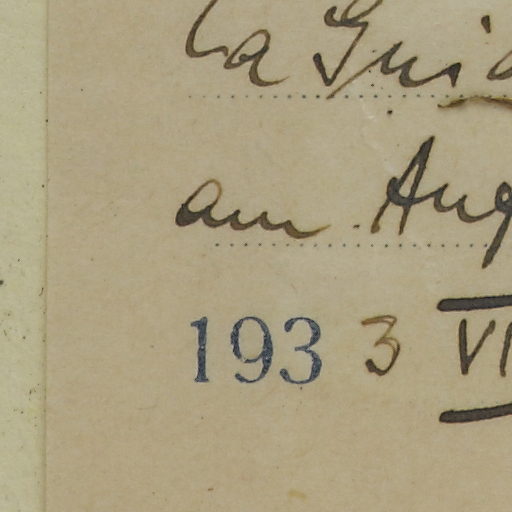 La Gui
am Aug
193 3 VI